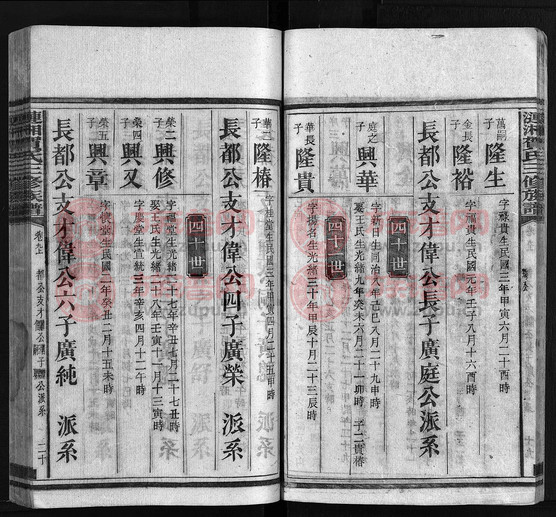 漣湘賀氏三修族譜
萬嗣子
隆生
字蘇貴生民國三年甲寅六月二十酉時
金長子
隆裕
字福貴生民國元年壬子八月十六酉時
長都公支才偉公長子廣庭公派系
四十世
庭之子
興華
字新日生同治八年己巳八月二十九申時
娶王氏生光緒九年癸未六月二十一卯時 子二貴椿
四十世
華長子
隆貴
字揚名生光緒三十年甲辰十月二十三辰時
華二子
隆椿
字桂堂生民國三年甲寅四月二十五申時
長都公支才偉公四子廣榮 派系
四十世
榮二子
興修
字福堂生光緒二十七年辛丑七月二十七丑時
娶王氏生光緒二十八年壬寅十二月十三寅時
榮四子
興又
字慶堂生宣統三年辛亥四月十二午時
榮五子
興章
字俊堂生民國二年癸丑二月十五未時
長都公支才偉公六子廣純 派系
漣湘賀氏三修族譜
公派系
二十